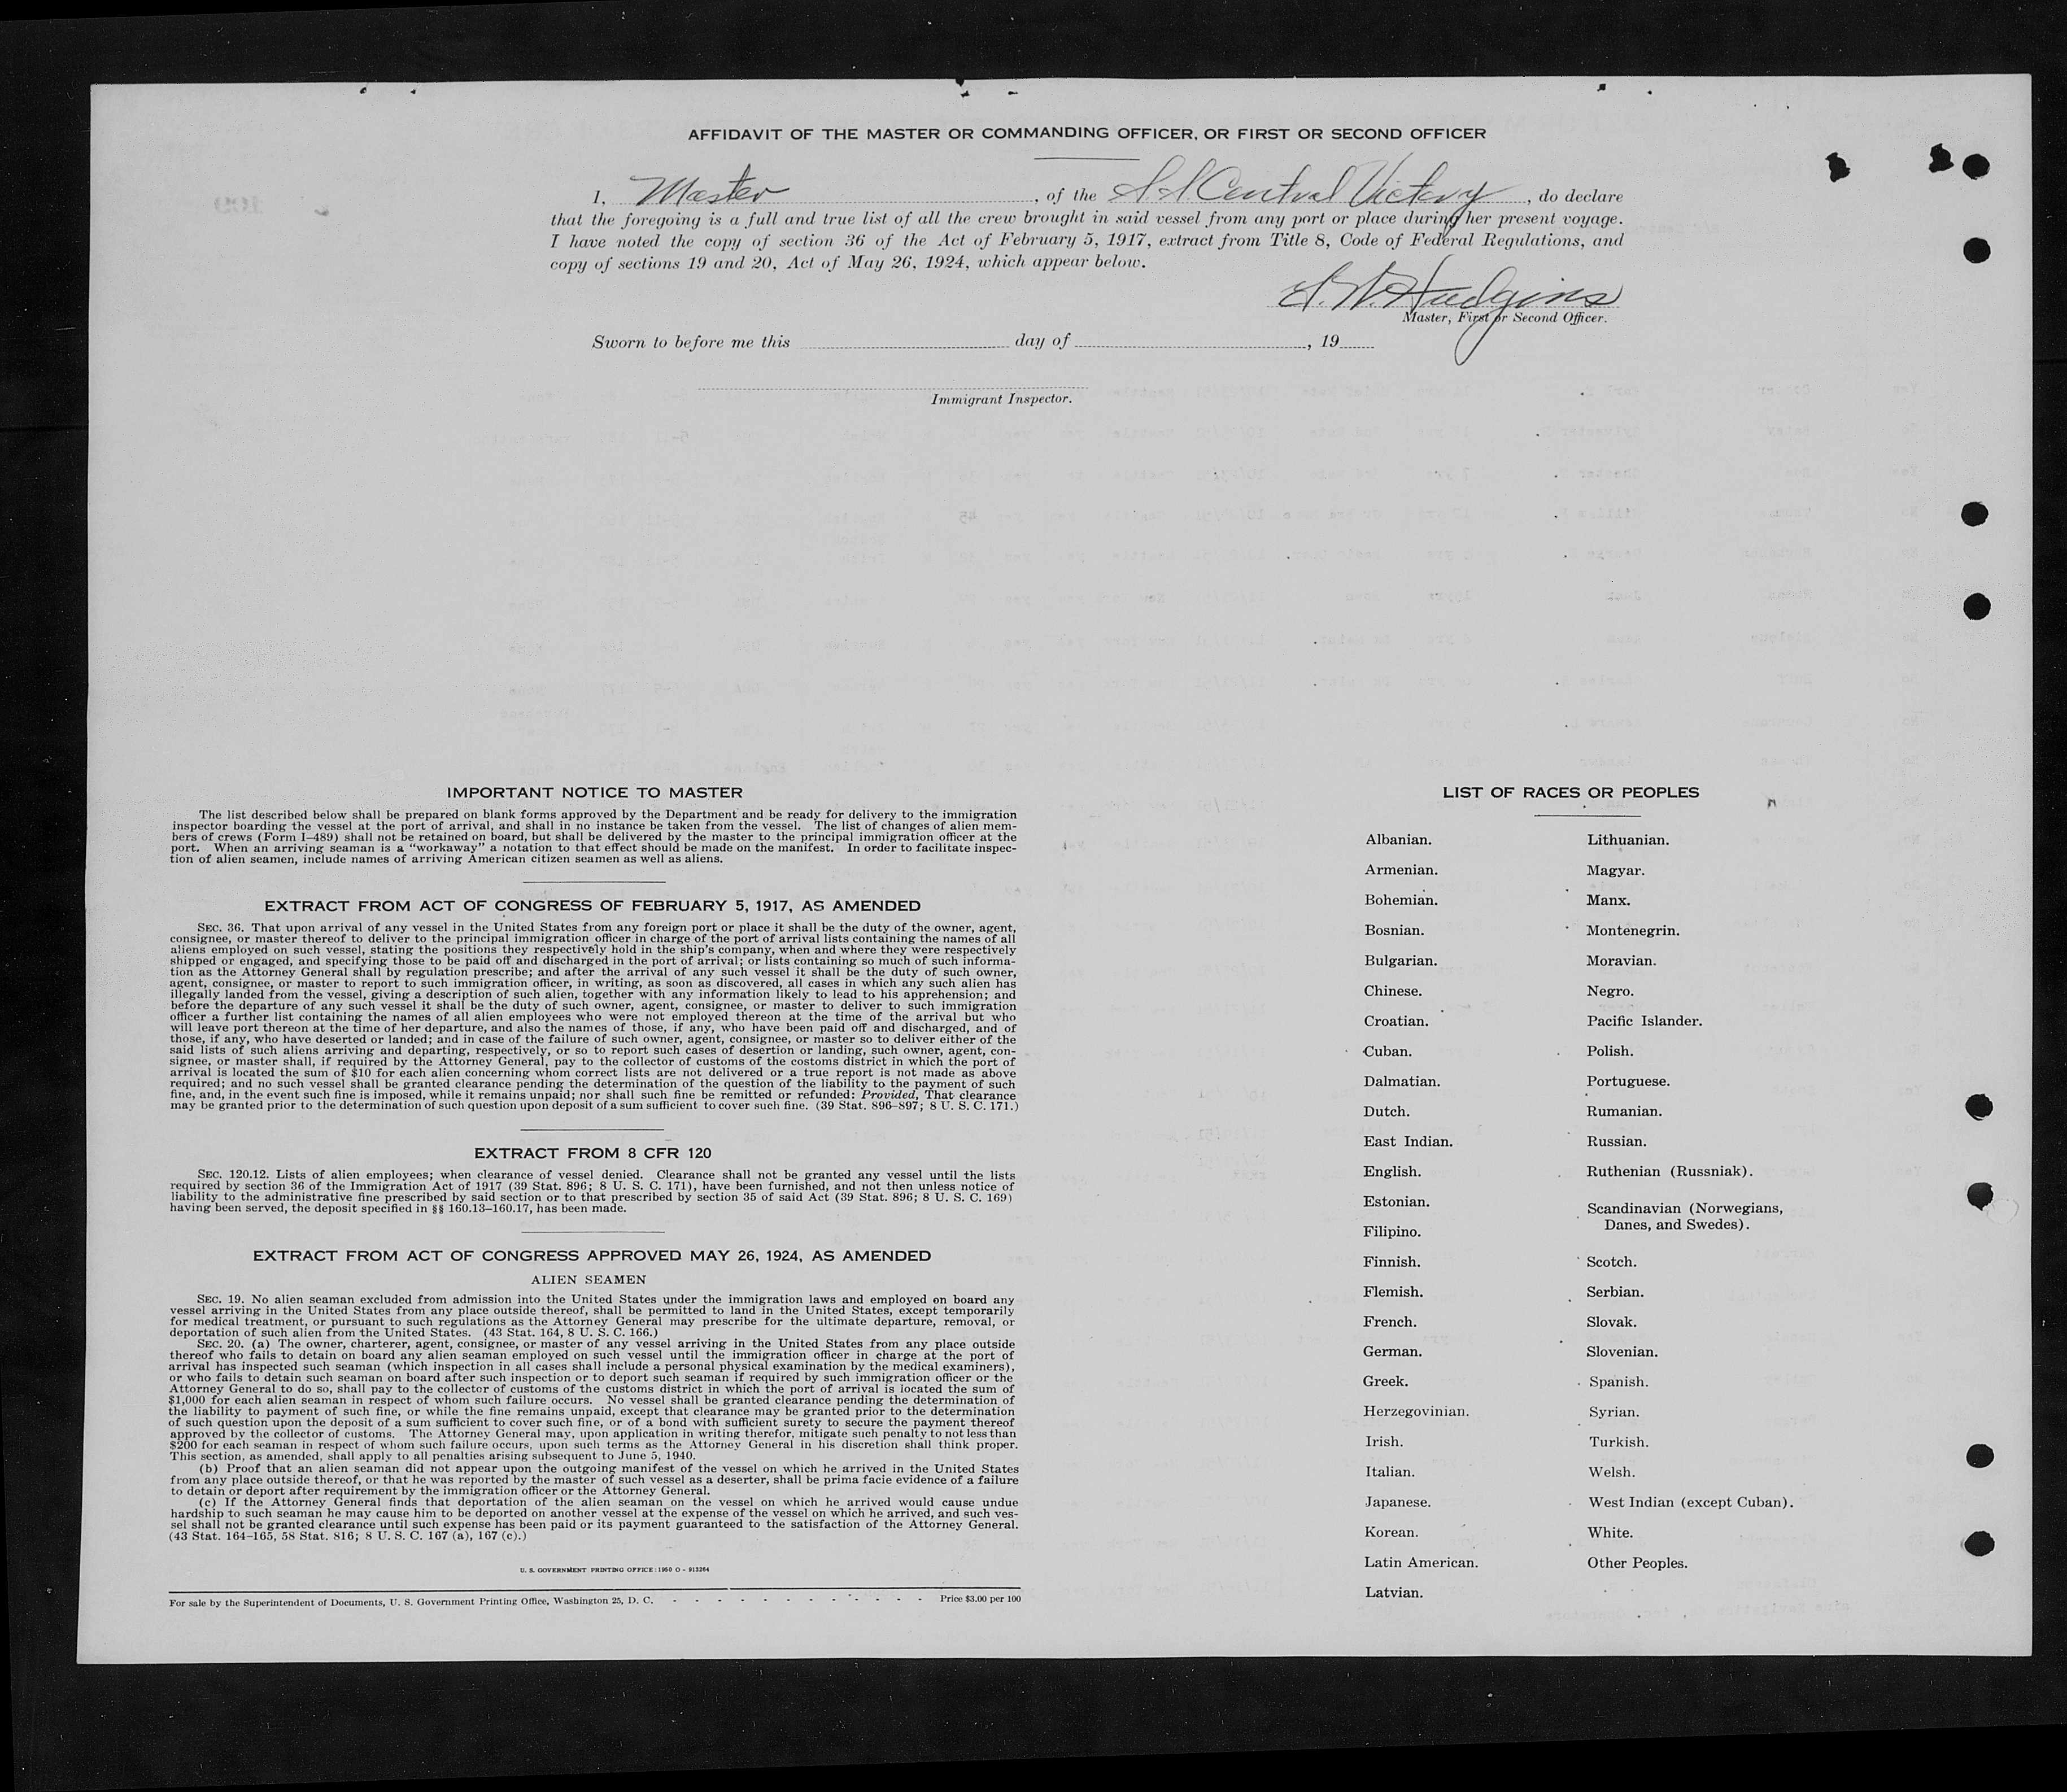 AFFIDAVIT OF THE MASTER OR COMMANDING OFFICER, OR FIRST OR SECOND OFFICER
I, Master, of the S. S. Central Victory, do declare
that the foregoing is a full and true list of all the crew brought in said vessel from any port or place during her present voyage.
I have noted the copy of section 36 of the Act of February 5, 1917, extract from Title 8, Code of Federal Regulations, and
copy of sections 19 and 20, Act of May 26, 1924, which appear below.
Hudgins
Master, First or Second Officer.
Sworn to before me this day of , 19
Immigrant Inspector.
IMPORTANT NOTICE TO MASTER
The list described below shall be prepared on blank forms approved by the Department and be ready for delivery to the immigration
inspector boarding the vessel at the port of arrival, and shall in no instance be taken from the vessel. The list of changes of alien mem-
bers of crews (Form I–489) shall not be retained on board, but shall be delivered by the master to the principal immigration officer at the
port. When an arriving seaman is a “workaway” a notation to that effect should be made on the manifest. In order to facilitate inspec-
tion of alien seamen, include names of arriving American citizen seamen as well as aliens.
EXTRACT FROM ACT OF CONGRESS OF FEBRUARY 5, 1917, AS AMENDED
SEC. 36. That upon arrival of any vessel in the United States from any foreign port or place it shall be the duty of the owner, agent,
consignee, or master thereof to deliver to the principal immigration officer in charge of the port of arrival lists containing the names of all
aliens employed on such vessel, stating the positions they respectively hold in the ship's company, when and where they were respectively
shipped or engaged, and specifying those to be paid off and discharged in the port of arrival; or lists containing so much of such informa-
tion as the Attorney General shall by regulation prescribe; and after the arrival of any such vessel it shall be the duty of such owner,
agent, consignee, or master to report to such immigration officer, in writing, as soon as discovered, all cases in which any such alien has
illegally landed from the vessel, giving a description of such alien, together with any information likely to lead to his apprehension; and
before the departure of any such vessel it shall be the duty of such owner, agent, consignee, or master to deliver to such immigration
officer a further list containing the names of all alien employees who were not employed thereon at the time of the arrival but who
will leave port thereon at the time of her departure, and also the names of those, if any, who have been paid off and discharged, and of
those, if any, who have deserted or landed; and in case of the failure of such owner, agent, consignee, or master so to deliver either of the
said lists of such aliens arriving and departing, respectively, or so to report such cases of desertion or landing, such owner, agent, con-
signee, or master, shall, if required by the Attorney General, pay to the collector of customs of the costoms district in which the port of
arrival is located the sum of $10 for each alien concerning whom correct lists are not delivered or a true report is not made as above
required; and no such vessel shall be granted clearance pending the determination of the question of the liability to the payment of such
fine, and, in the event such fine is imposed, while it remains unpaid; nor shall such fine be remitted or refunded: Provided, That clearance
may be granted prior to the determination of such question upon deposit of a sum sufficient to cover such fine. (39 Stat. 896–897; 8 U. S. C. 171.)
EXTRACT FROM 8 CFR 120
SEC. 120.12. Lists of alien employees; when clearance of vessel denied. Clearance shall not be granted any vessel until the lists
required by section 36 of the Immigration Act of 1917 (39 Stat. 896; 8 U. S. C. 171), have been furnished, and not then unless notice of
liability to the administrative fine prescribed by said section or to that prescribed by section 35 of said Act (39 Stat. 896; 8 U. S. C. 169)
having been served, the deposit specified in §§ 160.13–160.17, has been made.
EXTRACT FROM ACT OF CONGRESS APPROVED MAY 26, 1924, AS AMENDED
ALIEN SEAMEN
SEC. 19. No alien seaman excluded from admission into the United States under the immigration laws and employed on board any
vessel arriving in the United States from any place outside thereof, shall be permitted to land in the United States, except temporarily
for medical treatment, or pursuant to such regulations as the Attorney General may prescribe for the ultimate departure, removal, or
deportation of such alien from the United States. (43 Stat. 164, 8 U. S. C. 166.)
SEC. 20. (a) The owner, charterer, agent, consignee, or master of any vessel arriving in the United States from any place outside
thereof who fails to detain on board any alien seaman employed on such vessel until the immigration officer in charge at the port of
arrival has inspected such seaman (which inspection in all cases shall include a personal physical examination by the medical examiners),
or who fails to detain such seaman on board after such inspection or to deport such seaman if required by such immigration officer or the
Attorney General to do so, shall pay to the collector of customs of the customs district in which the port of arrival is located the sum of
$1,000 for each alien seaman in respect of whom such failure occurs. No vessel shall be granted clearance pending the determination of
the liability to payment of such fine, or while the fine remains unpaid, except that clearance may be granted prior to the determination
of such question upon the deposit of a sum sufficient to cover such fine, or of a bond with sufficient surety to secure the payment thereof
approved by the collector of customs. The Attorney General may, upon application in writing therefor, mitigate such penalty to not less than
$200 for each seaman in respect of whom such failure occurs, upon such terms as the Attorney General in his discretion shall think proper.
This section, as amended, shall apply to all penalties arising subsequent to June 5, 1940.
(b) Proof that an alien seaman did not appear upon the outgoing manifest of the vessel on which he arrived in the United States
from any place outside thereof, or that he was reported by the master of such vessel as a deserter, shall be prima facie evidence of a failure
to detain or deport after requirement by the immigration officer or the Attorney General.
(c) If the Attorney General finds that deportation of the alien seaman on the vessel on which he arrived would cause undue
hardship to such seaman he may cause him to be deported on another vessel at the expense of the vessel on which he arrived, and such ves-
sel shall not be granted clearance until such expense has been paid or its payment guaranteed to the satisfaction of the Attorney General.
(43 Stat. 164–165, 58 Stat. 816; 8 U. S. C. 167 (a), 167 (c).)
U. S. GOVERNMENT PRINTING OFFICE : 1950 O - 913264
For sale by the Superintendent of Documents, U. S. Government Printing Office, Washington 25, D. C. - - - - - - - - - - - - Price $3.00 per 100
LIST OF RACES OR PEOPLES
Albanian.
Armenian.
Bohemian.
Bosnian.
Bulgarian.
Chinese.
Croatian.
Cuban.
Dalmatian.
Dutch.
East Indian.
English.
Estonian.
Filipino.
Finnish.
Flemish.
French.
German.
Greek.
Herzegovinian.
Irish.
Italian.
Japanese.
Korean.
Latin American.
Latvian.
Lithuanian.
Magyar.
Manx.
Montenegrin.
Moravian.
Negro.
Pacific Islander.
Polish.
Portuguese.
Rumanian.
Russian.
Ruthenian (Russniak).
Scandinavian (Norwegians,
Danes, and Swedes).
Scotch.
Serbian.
Slovak.
Slovenian.
Spanish.
Syrian.
Turkish.
Welsh.
West Indian (except Cuban).
White.
Other Peoples.